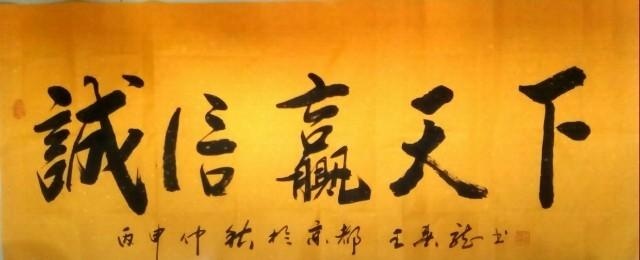 誠信贏天下
丙申仲秋於京都 王春龍书